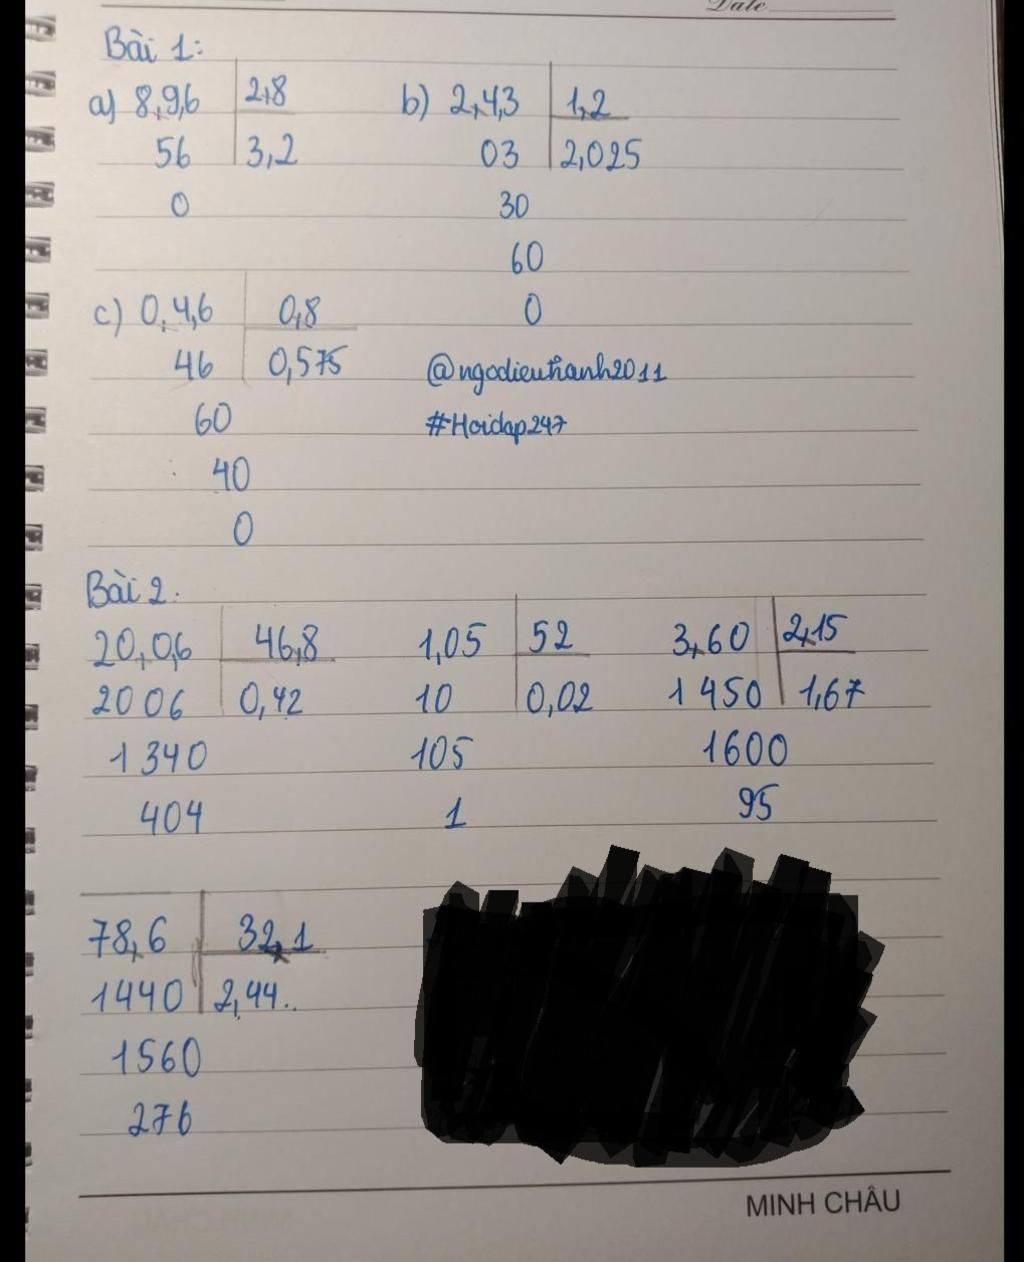 Date
Bài 1:
a) 8,9,6 2,8 b) 2,4,3 1,2
56 3,2 03 2,025
0 30
60
c) 0,4,6 0,8 0
46 0,575 @ngodieuthanh2011
60 #Hoidap247
40
0
Bài 2:
20,0,6 46,8 1,05 52 3,60 2,15
2006 0,42 10 0,02 1450 1,67
1340 105 1600
404 1 95
78,6 32,1
1440 2,44..
1560
276
MINH CHÂU